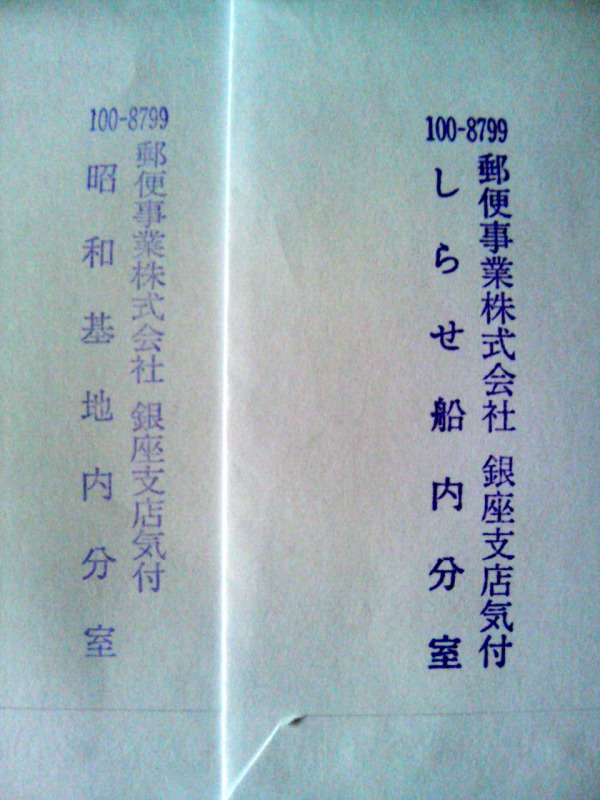 100-8799
郵便事業株式会社 銀座支店気付
しらせ船内分室
100-8799
郵便事業株式会社 銀座支店気付
昭和基地内分室